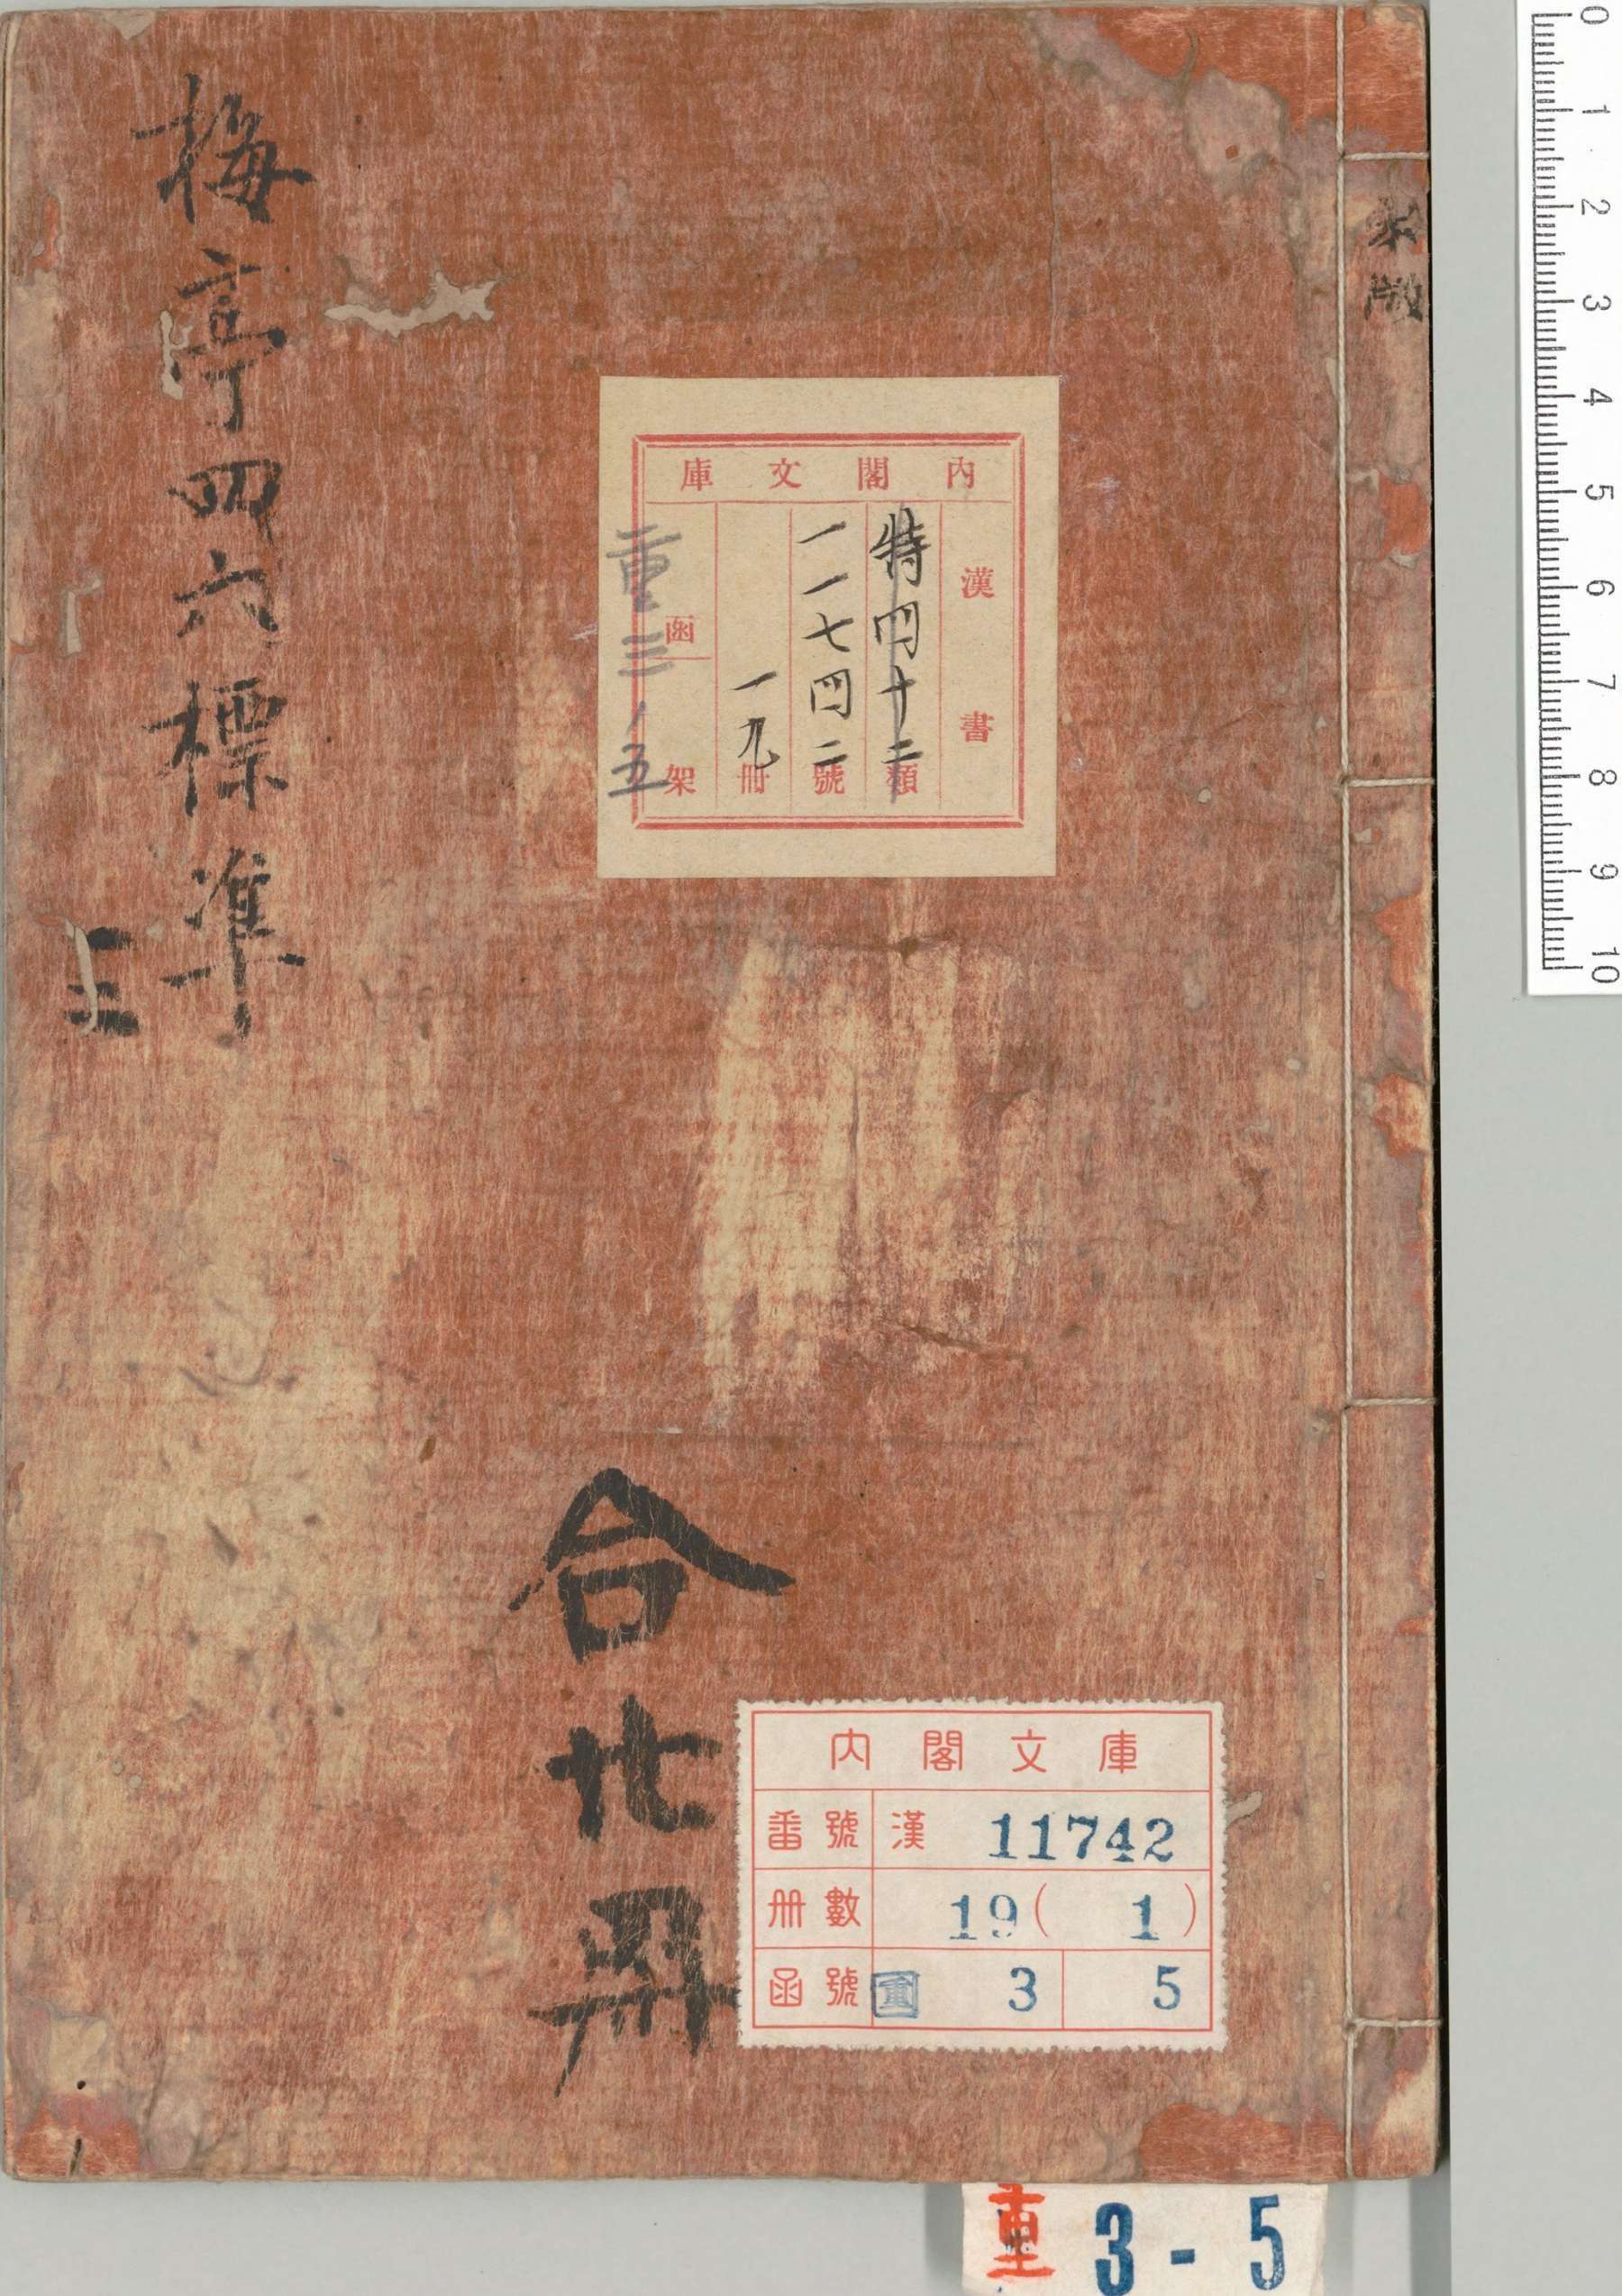 宋版
梅亭四六標準
内閣文庫
漢書
特四十二類
一一七四二號
一九冊
函 架
重三ノ五
合廿冊
内閣文庫
番號 漢 11742
冊數 19(1)
函號 重 3 5
重 3-5
0 1 2 3 4 5 6 7 8 9 10